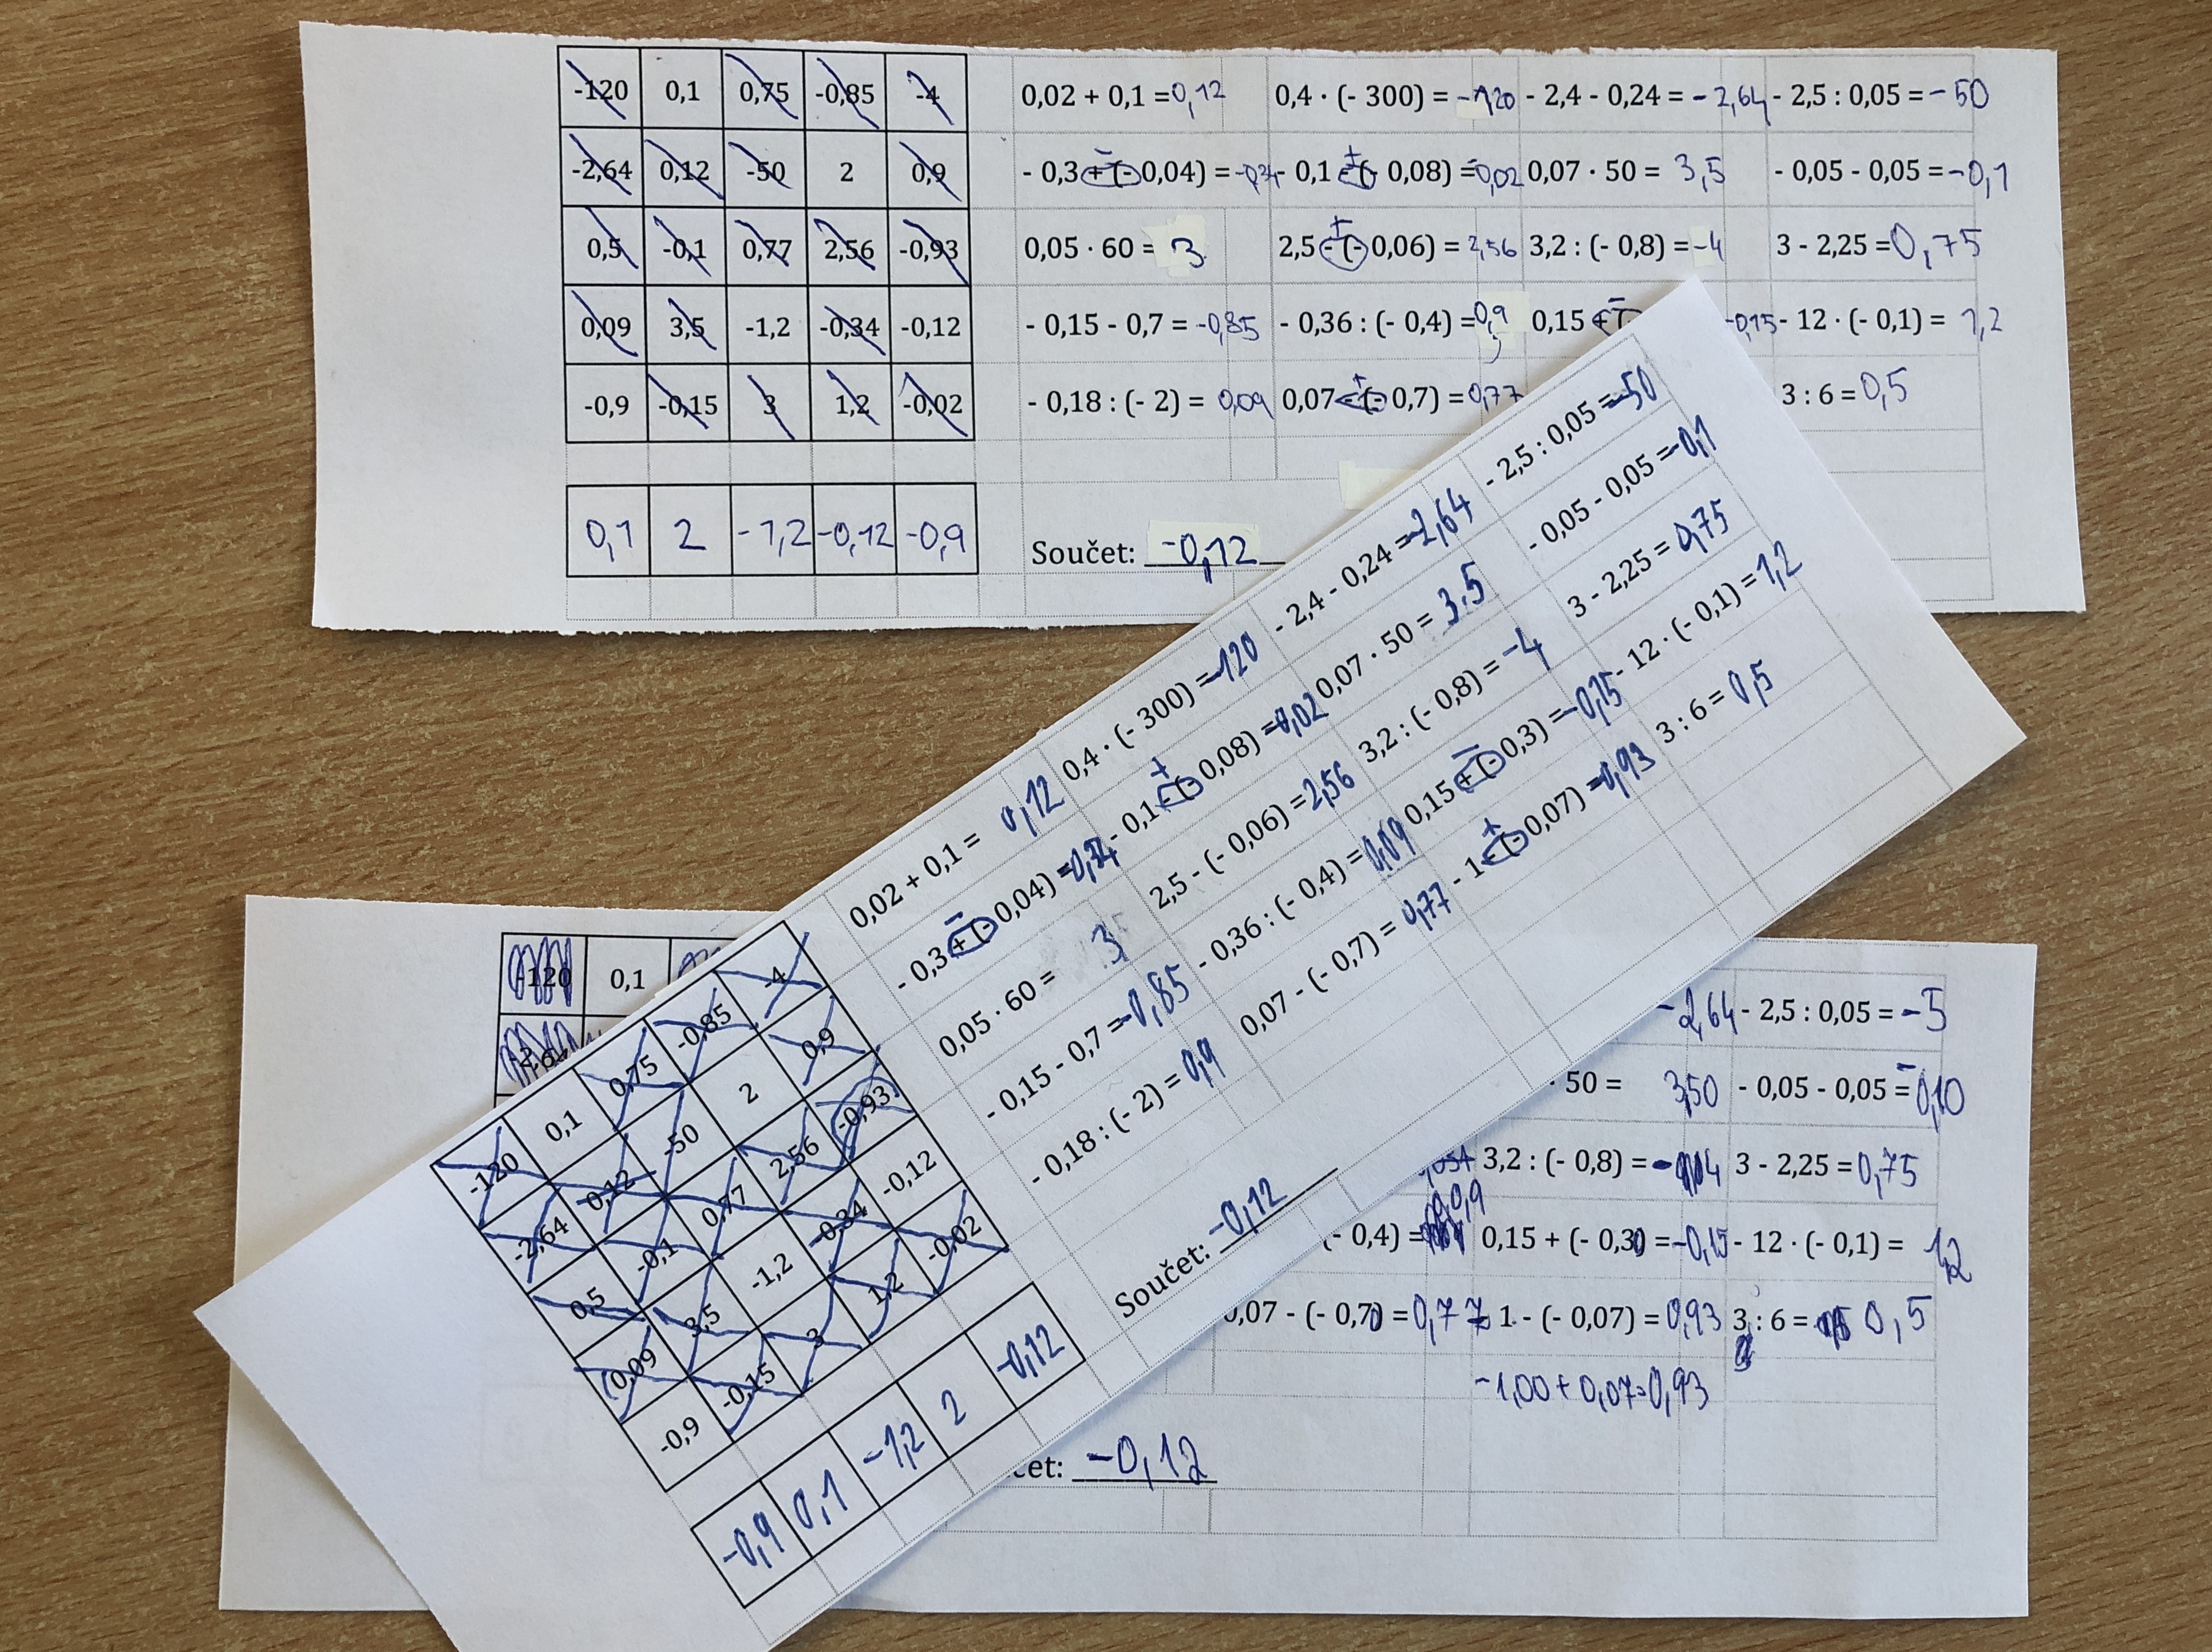 -120 0,1 0,75 -0,85 -4
-2,64 0,12 -50 2 0,9
0,5 -0,1 0,77 2,56 -0,93
0,09 3,5 -1,2 -0,34 -0,12
-0,9 -0,15 3 1,2 -0,02
0,1 2 -1,2 -0,12 -0,9
0,02 + 0,1 = 0,12 0,4 · (- 300) = -120 - 2,4 - 0,24 = -2,64 - 2,5 : 0,05 = -50
- 0,3 + (- 0,04) = -0,34 - 0,1 - (- 0,08) = -0,02 0,07 · 50 = 3,5 - 0,05 - 0,05 = -0,1
0,05 · 60 = 3 2,5 - (- 0,06) = 2,56 3,2 : (- 0,8) = -4 3 - 2,25 = 0,75
- 0,15 - 0,7 = -0,85 - 0,36 : (- 0,4) = 0,9 0,15 + -0,15 - 12 · (- 0,1) = 1,2
- 0,18 : (- 2) = 0,09 0,07 - (- 0,7) = 0,77 3 : 6 = 0,5
Součet: -0,12
-120 0,1 0,75 -0,85 -4
-2,64 0,12 -50 2 0,9
0,5 -0,1 0,77 2,56 -0,93
0,09 3,5 -1,2 -0,34 -0,12
-0,9 -0,15 3 1,2 -0,02
-0,9 0,1 -1,2 2 -0,12
0,02 + 0,1 = 0,12 0,4 · (- 300) = -120 - 2,4 - 0,24 = -2,64 - 2,5 : 0,05 = -50
- 0,3 + (- 0,04) = -0,34 - 0,1 - (- 0,08) = -0,02 0,07 · 50 = 3,5 - 0,05 - 0,05 = -0,1
0,05 · 60 = 3 2,5 - (- 0,06) = 2,56 3,2 : (- 0,8) = -4 3 - 2,25 = 0,75
- 0,15 - 0,7 = -0,85 - 0,36 : (- 0,4) = 0,09 0,15 + (- 0,3) = -0,15 - 12 · (- 0,1) = 1,2
- 0,18 : (- 2) = 0,9 0,07 - (- 0,7) = 0,77 - 1 - (- 0,07) = -0,93 3 : 6 = 0,5
Součet: -0,12
-120 0,1
-2,64
-2,64 - 2,5 : 0,05 = -5
· 50 = 3,50 - 0,05 - 0,05 = -0,10
3,2 : (- 0,8) = - 4 3 - 2,25 = 0,75
(- 0,4) = 0,9 0,15 + (- 0,30 = -0,15 - 12 · (- 0,1) = 12
0,07 - (- 0,70 = 0,77 - 1 - (- 0,07) = 0,93 3 : 6 = 0,5
-1,00 + 0,07 = 0,93
čet: -0,12